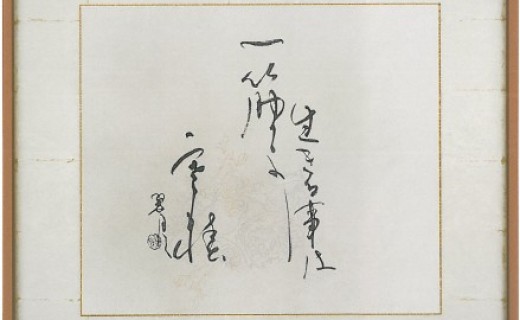 生きる事は
一筋がよし
寒椿